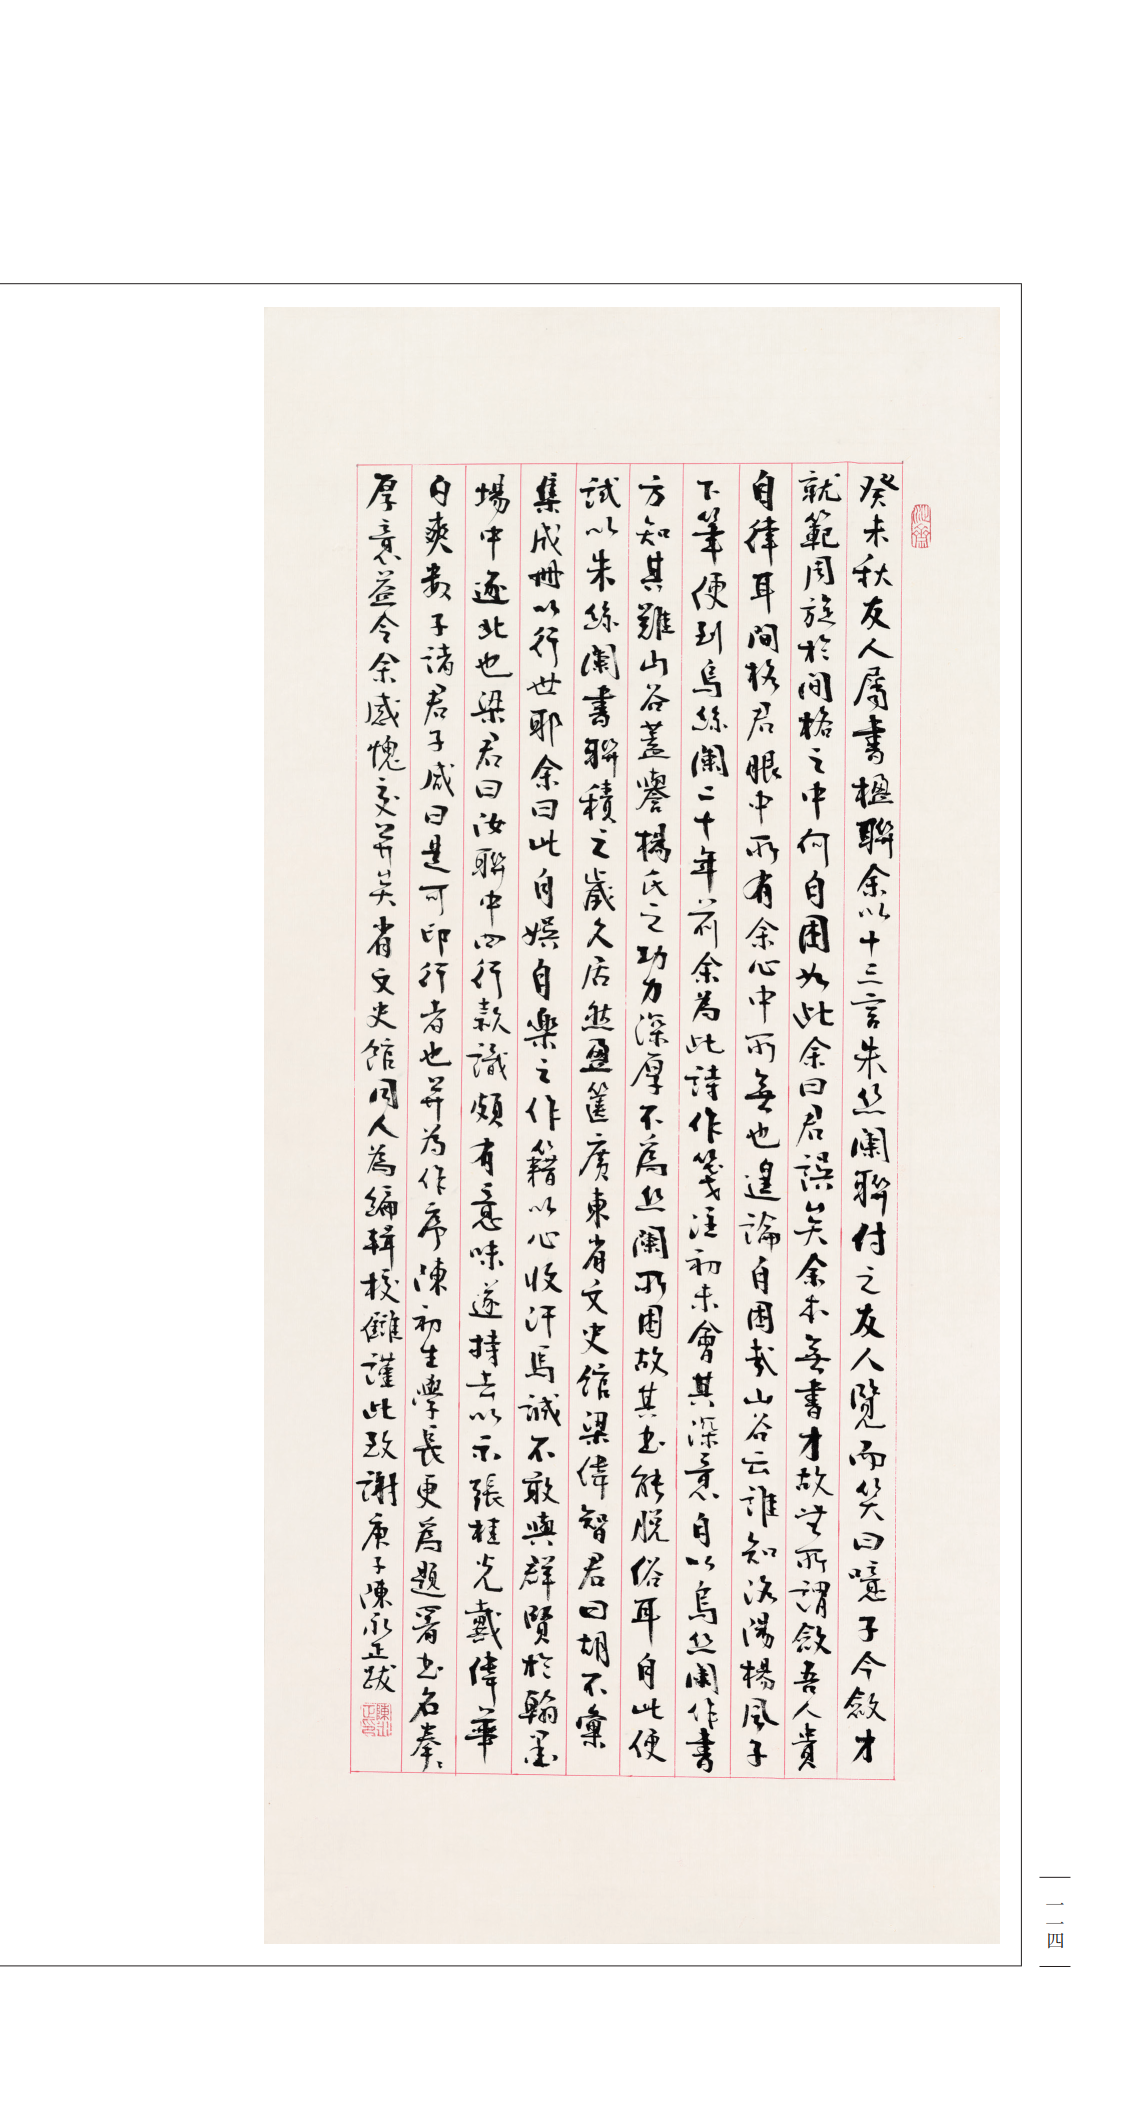 癸未秋友人屬書楹聯余以十三言朱丝闌聯付之友人覽而笑曰噫子今斂才
就範周旋於間格之中何自困如此余曰君誤矣余本無書才故無所謂斂吾人貴
自律耳間格君眼中所有余心中所無也遑論自困哉山谷云誰知洛陽楊風子
下筆便到烏絲闌二十年前余為此詩作箋注初未會其深意自以烏丝闌作書
方知其難山谷蓋譽楊氏之功力深厚不為丝闌所困故其书能脱俗耳自此便
試以朱絲闌書聯積之歲久居然盈篋廣東省文史館梁偉智君曰胡不彙
集成冊以行世耶余曰此自娛自樂之作籍以心收汗馬誠不敢與群賢於翰墨
場中逐北也梁君曰汝聯中四行款識頗有意味遂持去以示張桂光戴偉華
白爽數子諸君子咸曰是可印行者也并為作序陳初生學長更為題署书名拳〻
厚意益令余感愧交并矣省文史館同人為編輯校讎謹此致謝庚子陳永正跋
一一四